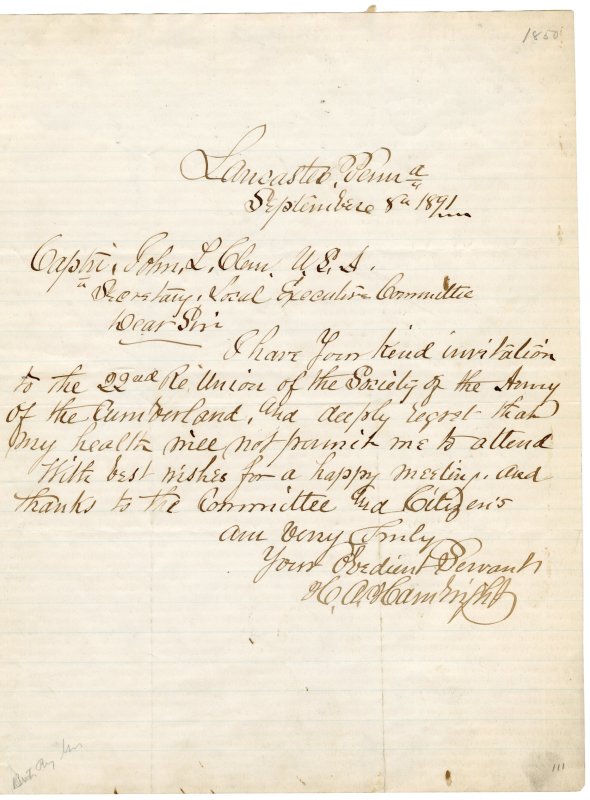 1850
Lancaster, Penna
September 8th 1891
Captn. John. L. Clem. U.S.A.
Secretary. Local Executive Committee
Dear Sir
I have Your kind invitation
to the 22nd Re Union of the Society of the Army
of the Cumberland, and deeply regret that
my health will not permit me to attend
With best wishes for a happy meeting. and
thanks to the Committee and Citizens
am Very Truly
Your Obedient Servant
H. A. Hambright
111